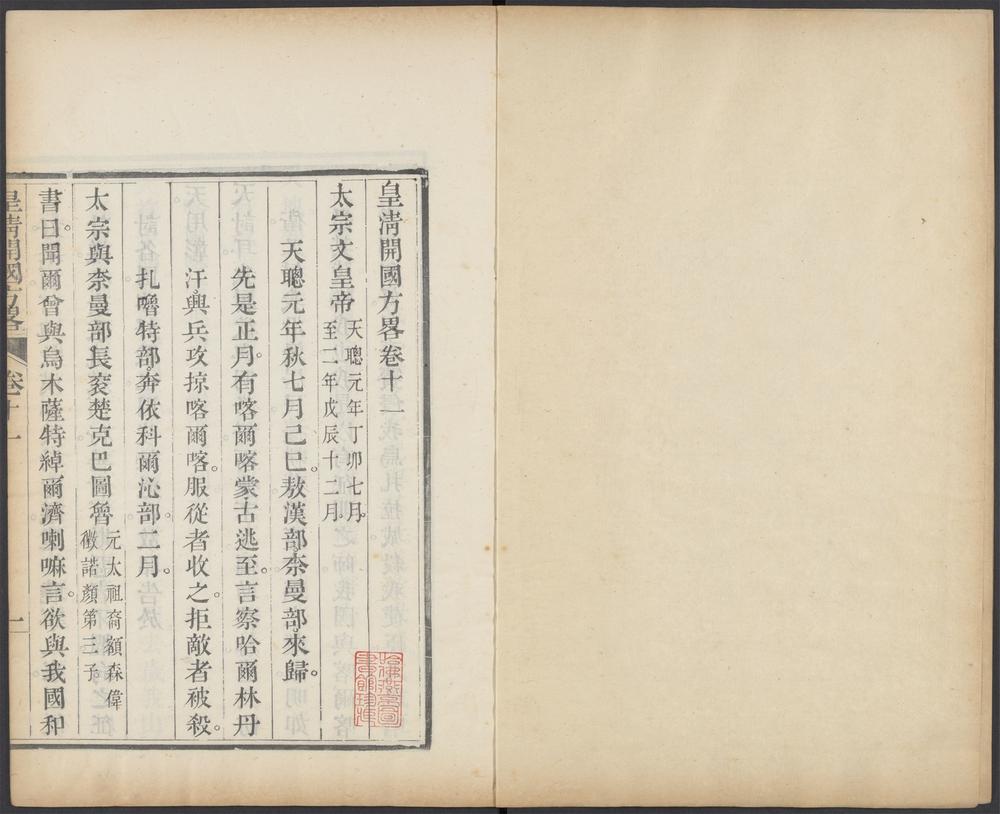 皇淸開國方畧卷十一
太宗文皇帝天聰元年丁卯七月。至二年戊辰十二月。
天聰元年秋七月己巳。敖漢部。柰曼部。來歸。
先是正月。有喀爾喀蒙古逃至。言察哈爾林丹
汗。興兵攻掠喀爾喀。服從者收之。拒敵者被殺。
扎嚕特部。奔依科爾沁部。二月。
太宗與柰曼部長袞楚克巴圖魯元太祖裔額森偉徵諾顏第三子。
書曰。聞爾曾與烏木薩特綽爾濟喇嘛言。欲與我國和
皇淸開國方畧 卷十一 一